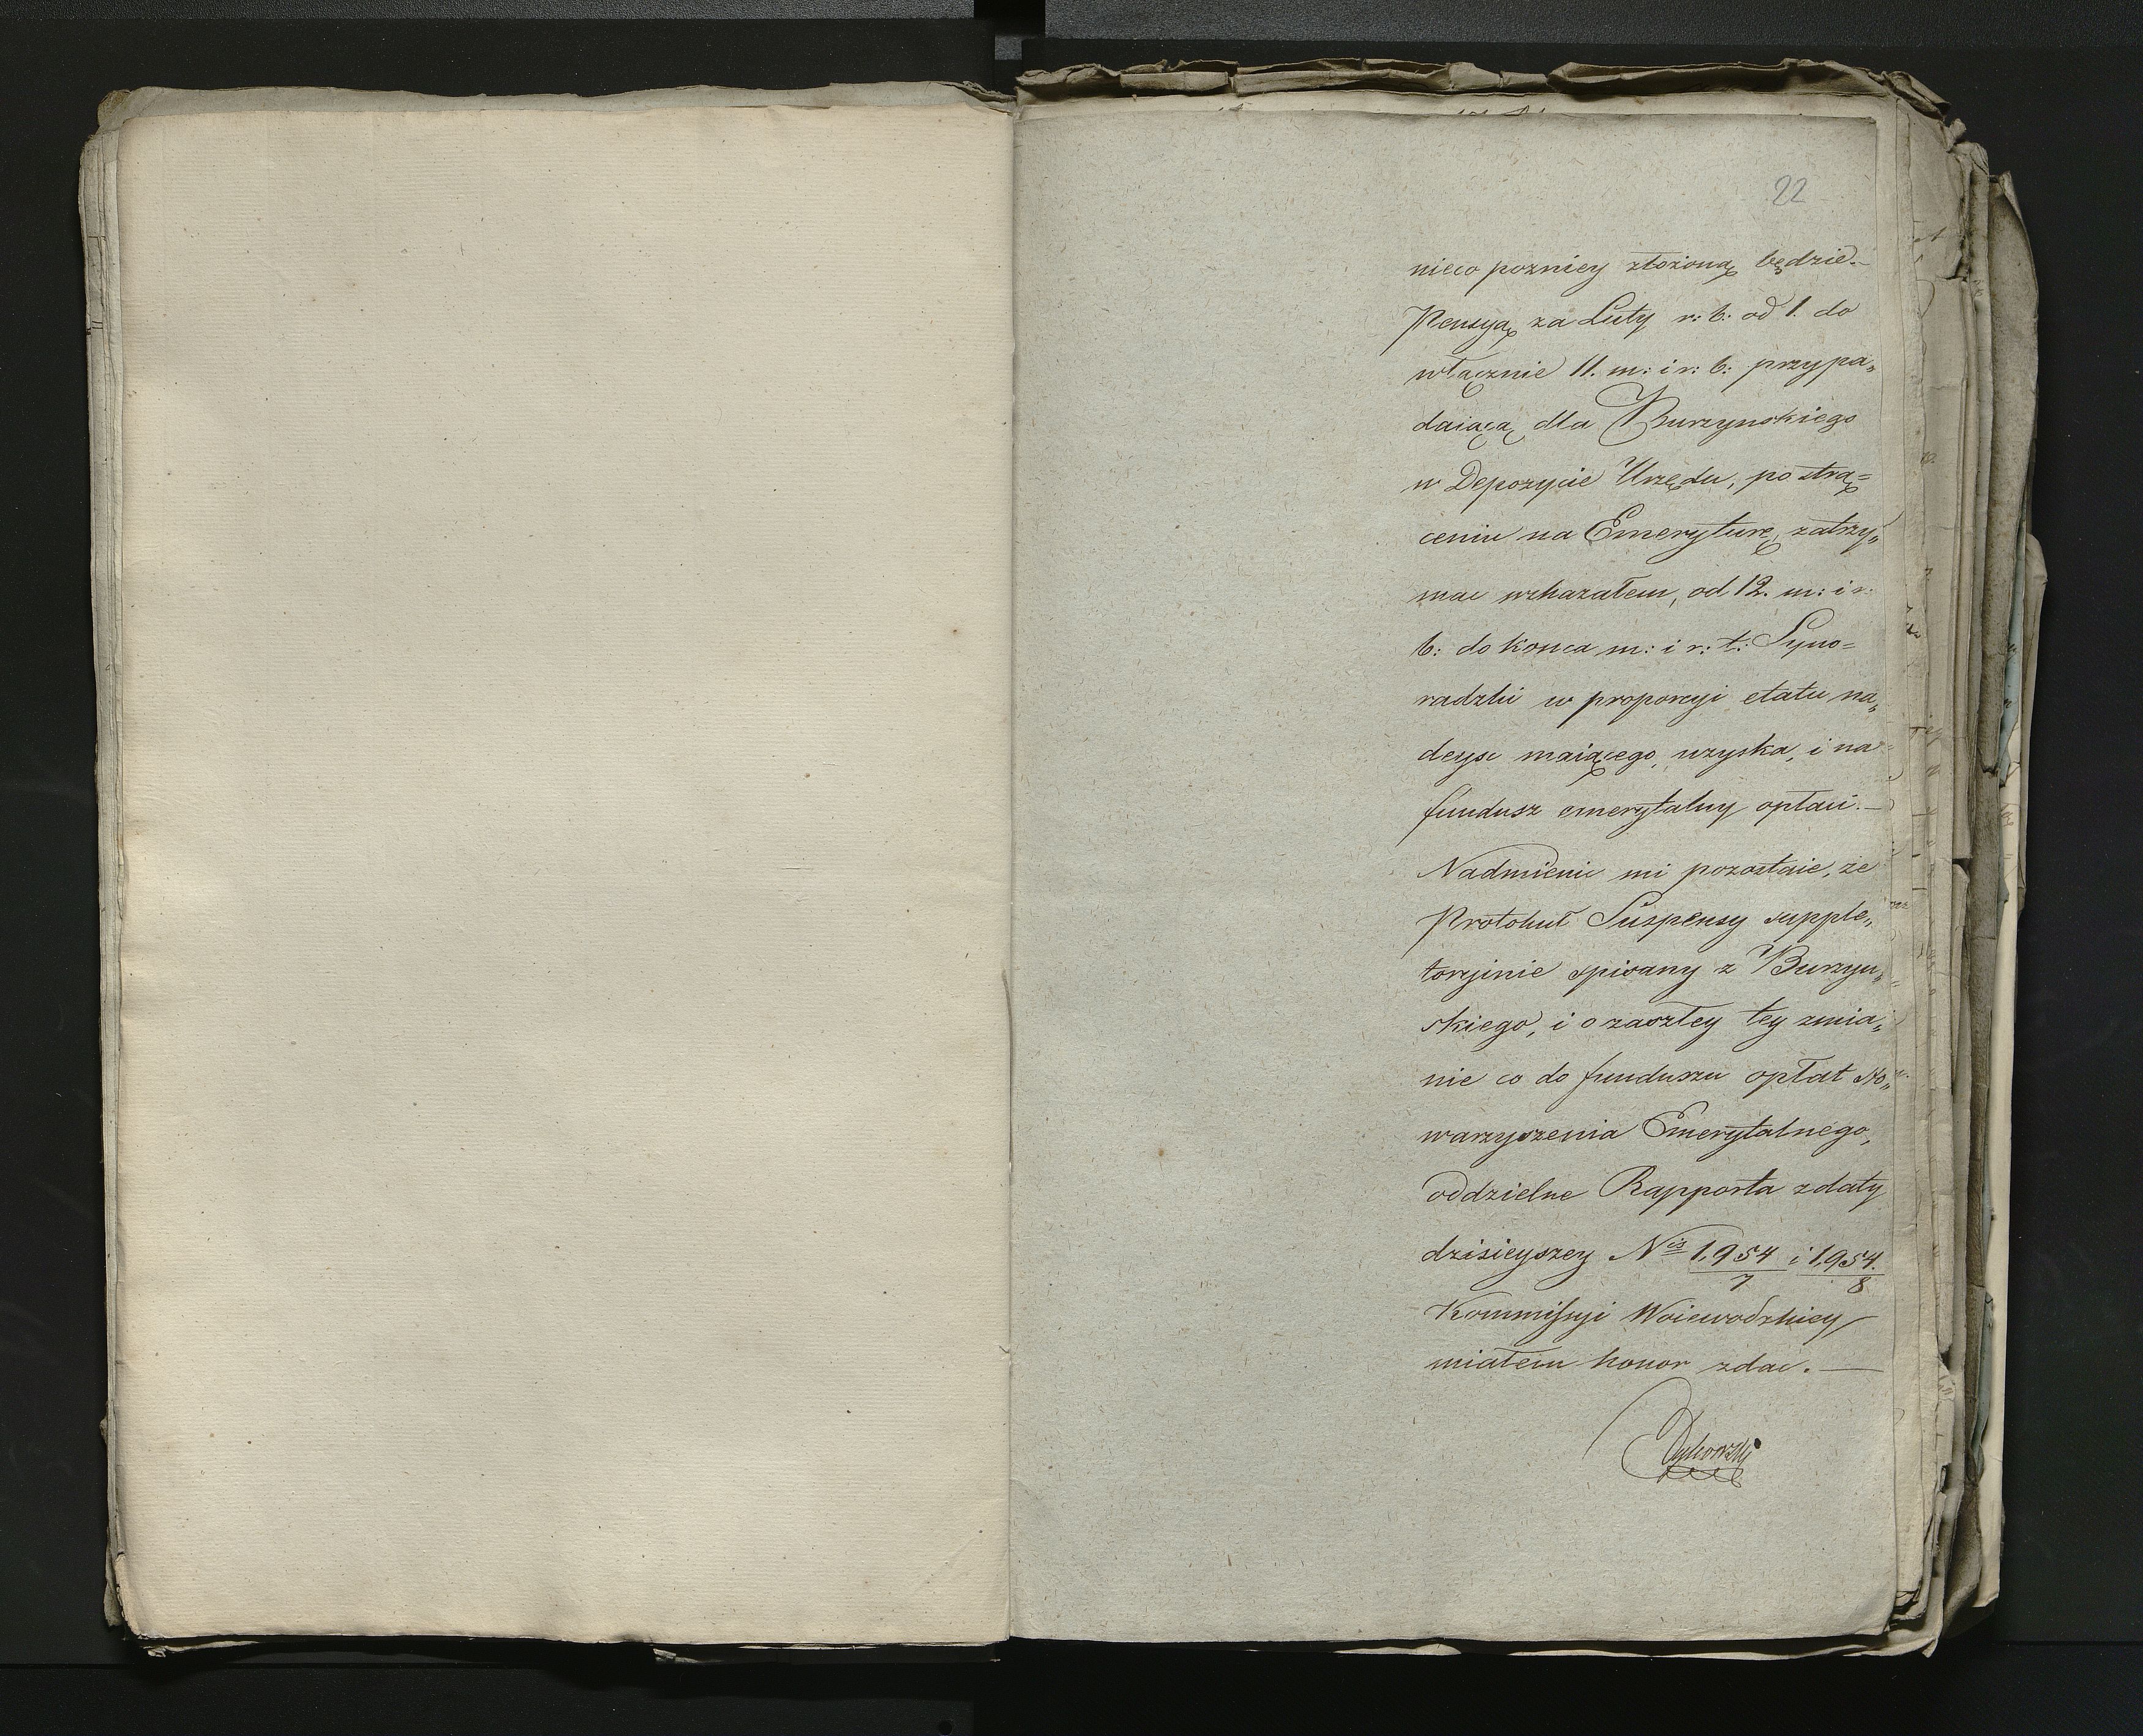 22
nieco pozniey złożoną będzie.—
Pensyą za Luty r: b: od 1. do
włącznie 11. m: i r: b: przypa„
daiącą dla Burzynskiego
w Depozycie Urzędu, po strą=
ceniu na Emeryturę, zatrzy„
mac wskazałem, od 12. m: i r:
b: do konca m: i r: t: Syno=
radzki w proporcyi etatu na„
deyść maiącego, uzyska, i na
fundusz emerytalny opłaci.—
Nadmienić mi pozostaie, że
Protokuł Suspensy supple„
toryinie spisany z Burzyn„
skiego, i o zaszłey tey zmia„
nie co do funduszu opłat Sto„
warzyszenia Emerytalnego,
oddzielne Rapporta z daty
dzisieyszey Nis 1,954/7 i 1,954./8
Kommissyi Woiewodzkiey
miałem honor zdać.—